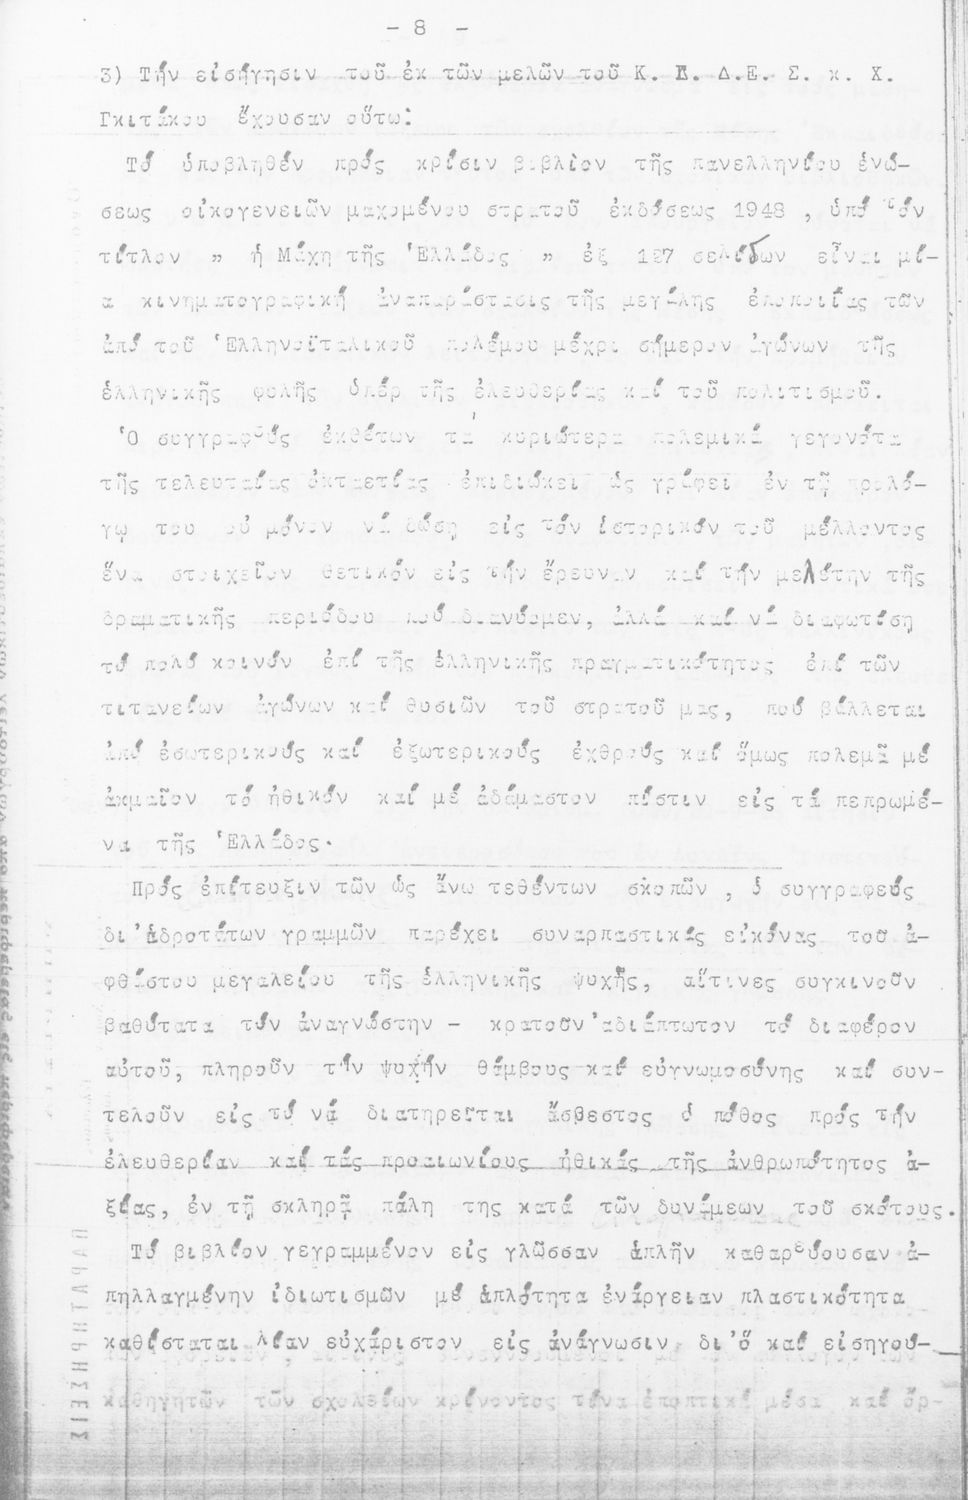 - 8 -
3) Τήν εἰσήγησιν τοῦ ἐκ τῶν μελῶν τοῦ Κ. Γ. Δ.Ε. Σ. κ. Χ.
Γκιτάκου ἔχουσαν οὕτω:
Τό ὑποβληθέν πρός κρίσιν βιβλίον τῆς πανελληνίου ἑνώ-
σεως οἰκογενειῶν μαχομένου στρατοῦ ἐκδόσεως 1948 , ὑπό τόν
τίτλον " ἡ Μάχη τῆς Ἑλλάδος " ἐξ 127 σελίδων εἶναι μί-
α κινηματογραφική ἀναπαράστασις τῆς μεγάλης ἐποποιΐας τῶν
ἀπό τοῦ Ἑλληνοϊταλικοῦ πολέμου μέχρι σήμερον ἀγώνων τῆς
ἑλληνικῆς φυλῆς ὑπέρ τῆς ἐλευθερίας καί τοῦ πολιτισμοῦ.
Ὁ συγγραφεύς ἐκθέτων τά κυριώτερα πολεμικά γεγονότα
τῆς τελευταίας ὀκταετίας ἐπιδιώκει ὡς γράφει ἐν τῷ προλό-
γῳ του οὐ μόνον νά δώσῃ εἰς τόν ἱστορικόν τοῦ μέλλοντος
ἕνα στοιχεῖον θετικόν εἰς τήν ἔρευναν καί τήν μελέτην τῆς
δραματικῆς περιόδου πού διανύομεν, ἀλλά καί νά διαφωτίσῃ
τό πολύ κοινόν ἐπί τῆς ἑλληνικῆς πραγματικότητος ἐπί τῶν
τιτανείων ἀγώνων καί θυσιῶν τοῦ στρατοῦ μας, πού βάλλεται
ἀπό ἐσωτερικούς καί ἐξωτερικούς ἐχθρούς καί ὅμως πολεμᾶ μέ
ἀκμαῖον τό ἠθικόν καί μέ ἀδάμαστον πίστιν εἰς τά πεπρωμέ-
να τῆς Ἑλλάδος.
Πρός ἐπίτευξιν τῶν ὡς ἄνω τεθέντων σκοπῶν , ὁ συγγραφεύς
δι'ἁδροτάτων γραμμῶν παρέχει συναρπαστικάς εἰκόνας τοῦ ἀ-
φθάστου μεγαλείου τῆς ἑλληνικῆς ψυχῆς, αἵτινες συγκινοῦν
βαθύτατα τόν ἀναγνώστην - κρατοῦν ἀδιάπτωτον τό διαφέρον
αὐτοῦ, πληροῦν τήν ψυχήν θάμβους καί εὐγνωμοσύνης καί συν-
τελοῦν εἰς τό νά διατηρεῖται ἄσβεστος ὁ πόθος πρός τήν
ἐλευθερίαν καί τάς προαιωνίους ἠθικάς τῆς ἀνθρωπότητος ἀ-
ξίας, ἐν τῇ σκληρᾷ πάλη της κατά τῶν δυνάμεων τοῦ σκότους.
Τό βιβλίον γεγραμμένον εἰς γλῶσσαν ἁπλῆν καθαρεύουσαν ἀ-
πηλλαγμένην ἰδιωτισμῶν μέ ἁπλότητα ἐνάργειαν πλαστικότητα
καθίσταται λίαν εὐχάριστον εἰς ἀνάγνωσιν δι'ὅ καί εἰσηγού-
καθηγητῶν τῶν σχολείων κρίνοντος τίνα ἐποπτικά μέσα καί ὄρ-
ΠΑΡΑΤΗΡΗΣΕΙΣ